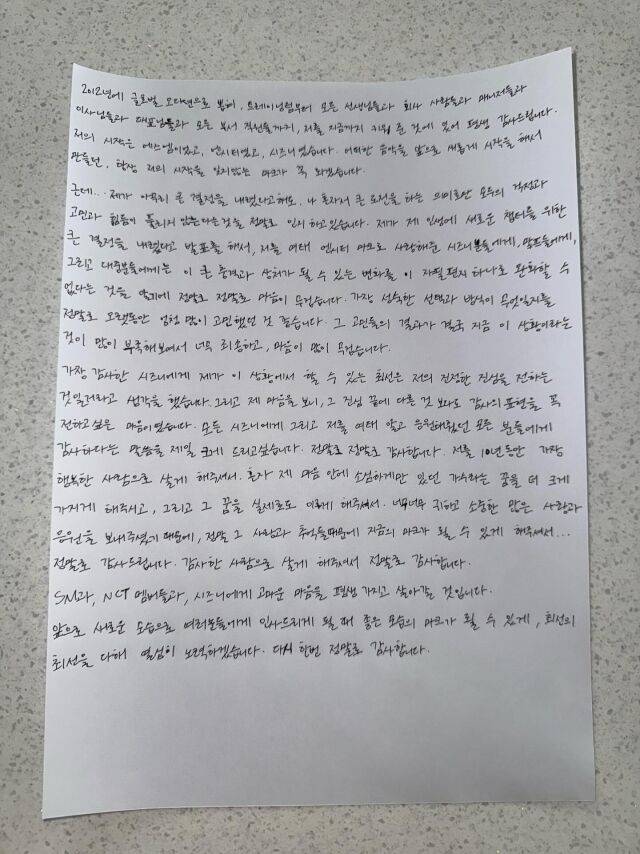 2012년에 글로벌 오디션으로 뽑혀, 트레이닝팀부터 모든 선생님들과 회사 사람들과 매니저들과
이사님들과 대표님들과 모든 부서 직원들까지, 저를 지금까지 키워 준 것에 있어 평생 감사드립니다.
저의 시작은 에스엠이었고, 엔시티였고, 시즈니였습니다. 어떠한 음악을 앞으로 새롭게 시작을 해서
만들던, 항상 저의 시작을 잊지않는 마크가 꼭 되겠습니다.
근데.. 제가 아무리 큰 결정을 내렸다고해도, 나 혼자서 큰 도전을 하는 의미로만 모두의 걱정과
고민과 힘듬이 풀리지 않는다는것을 정말로 인지하고있습니다. 제가 제 인생에 새로운 챕터를 위한
큰 결정을 내렸다고 발표를 해서, 저를 여태 엔시티 마크로 사랑해준 시즈니분들에게, 맘프들에게,
그리고 대중분들에게는 이 큰 충격과 상처가 될 수 있는 변화를 이 자필편지 하나로 완화할 수
없다는 것을 알기에 정말로 정말로 마음이 무겁습니다. 가장 성숙한 선택과 방식이 무엇일지를
정말로 오랫동안 엄청 많이 고민했던 것 같습니다. 그 고민들의 결과가 결국 지금 이 상황이라는
것이 많이 부족해보여서 너무 죄송하고, 마음이 많이 무겁습니다.
가장 감사한 시즈니에게 제가 이 상황에서 할 수 있는 최선은 저의 진정한 진심을 전하는
것일거라고 생각을 했습니다. 그리고 제 마음을 보니, 그 진심 끝에 다른 것 보다도 감사의 표현을 꼭
전하고싶은 마음이었습니다. 모든 시즈니에게 그리고 저를 여태 알고 응원해줬던 모든 분들에게
감사하다는 말씀을 제일 크게 드리고싶습니다. 정말로 정말로 감사합니다. 저를 10년동안 가장
행복한 사람으로 살게 해주셔서. 혼자 제 마음 안에 소심하게만 있던 가수라는 꿈을 더 크게
가지게 해주시고, 그리고 그 꿈을 실제로도 이뤄게 해주셔서. 너무너무 귀하고 소중한 많은 사랑과
응원을 보내주셨기 때문에, 정말 그 사랑과 추억들때문에 지금의 마크가 될 수 있게 해주셔서...
정말로 감사드립니다. 감사한 사람으로 살게 해주셔서 정말로 감사합니다.
SM과, NCT 멤버들과, 시즈니에게 고마운 마음을 평생 가지고 살아갈 것입니다.
앞으로 새로운 모습으로 여러분들에게 인사드리게 될 때 좋은 모습의 마크가 될 수 있게, 최선의
최선을 다해 열심히 노력하겠습니다. 다시 한번 정말로 감사합니다.